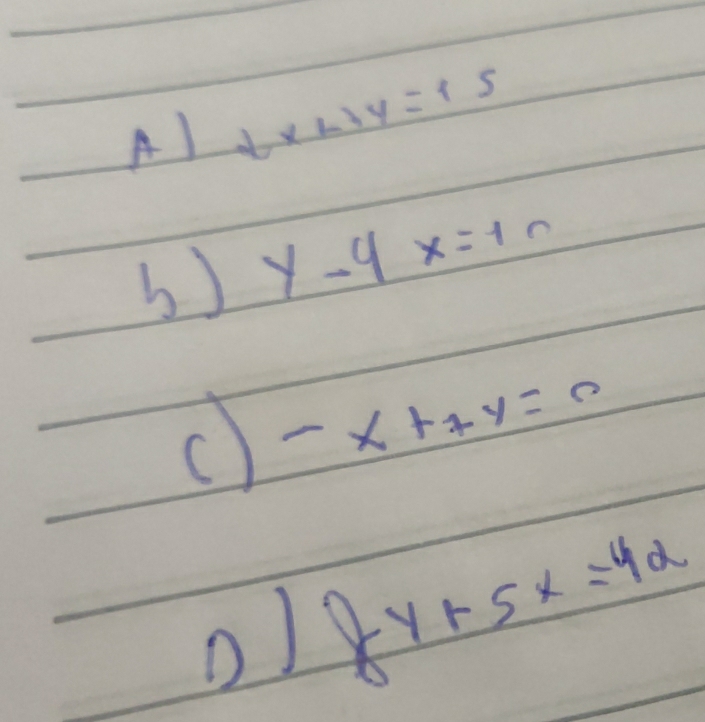 A) 2x+3y=15
b) y-4x=10
c) -x+7y=0
D) 8y+5x=42